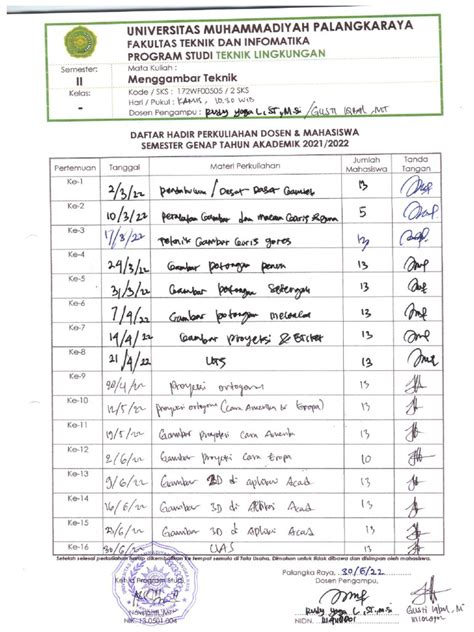 UNIVERSITAS MUHAMMADIYAH PALANGKARAYA
FAKULTAS TEKNIK DAN INFOMATIKA
PROGRAM STUDI TEKNIK LINGKUNGAN
Semester: II
Kelas: -
Mata Kuliah :
Menggambar Teknik
Kode / SKS : 172WF00505 / 2 SKS
Hari / Pukul : KAMIS, 10.30 WIB
Dosen Pengampu : Rudy Yoga L, ST, M.Si / GUSTI IQBAL, MT
DAFTAR HADIR PERKULIAHAN DOSEN & MAHASISWA
SEMESTER GENAP TAHUN AKADEMIK 2021/2022
Pertemuan Tanggal Materi Perkuliahan Jumlah Mahasiswa Tanda Tangan
Ke-1 2/3/22 Pendahuluan / Dasar Dasar Gambar 13
Ke-2 10/3/22 Peralatan Gambar dan macam Garis 5
Ke-3 17/3/22 Teknik Gambar Garis gores 12
Ke-4 24/3/22 Gambar potongan penuh 13
Ke-5 31/3/22 Gambar potongan Setengah 13
Ke-6 7/4/22 Gambar potongan melonjak 13
Ke-7 14/4/22 Gambar Proyeksi & Etiket 13
Ke-8 21/4/22 UTS 13
Ke-9 /4/22 Proyeksi ortogonal 13
Ke-10 12/5/22 Proyeksi ortogonal (Cara Amerika & Eropa) 13
Ke-11 19/5/22 Gambar proyeksi Cara Amerika 13
Ke-12 2/6/22 Gambar proyeksi Cara Eropa 10
Ke-13 9/6/22 Gambar 2D di aplikasi Acad 13
Ke-14 16/6/22 Gambar 3D di Aplikasi Acad 13
Ke-15 /6/22 Gambar 3D di Aplikasi Acad 13
Ke-16 30/6/22 UAS 13
Palangka Raya, 30/6/22
Ketua Program Studi
Dosen Pengampu,
NIK. 13.0501.004
Rudy Yoga L, ST, M.Si
Gusti Iqbal, MT
NIDN.